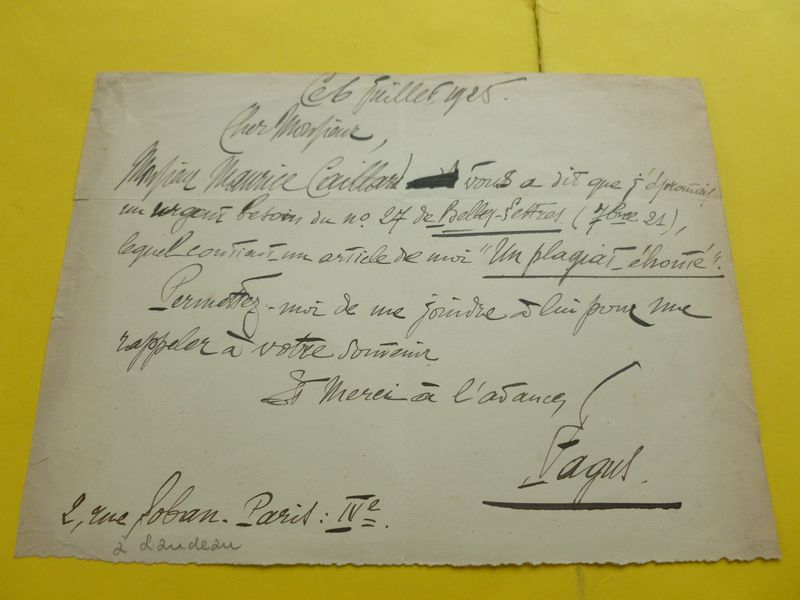 Ce 6 juillet, 1925.
Cher Monsieur,
Monsieur Maurice Caillard vous a dit que j'éprouvais
un urgent besoin du no. 27 de Belles-Lettres (7bre 21),
lequel contient un article de moi "Un plagiat éhonté".
Permettez-moi de me joindre à lui pour me
rappeler à votre souvenir
Et Merci à l'avance
Fagus.
2, rue Lobau. Paris : IVe.
à Landeau